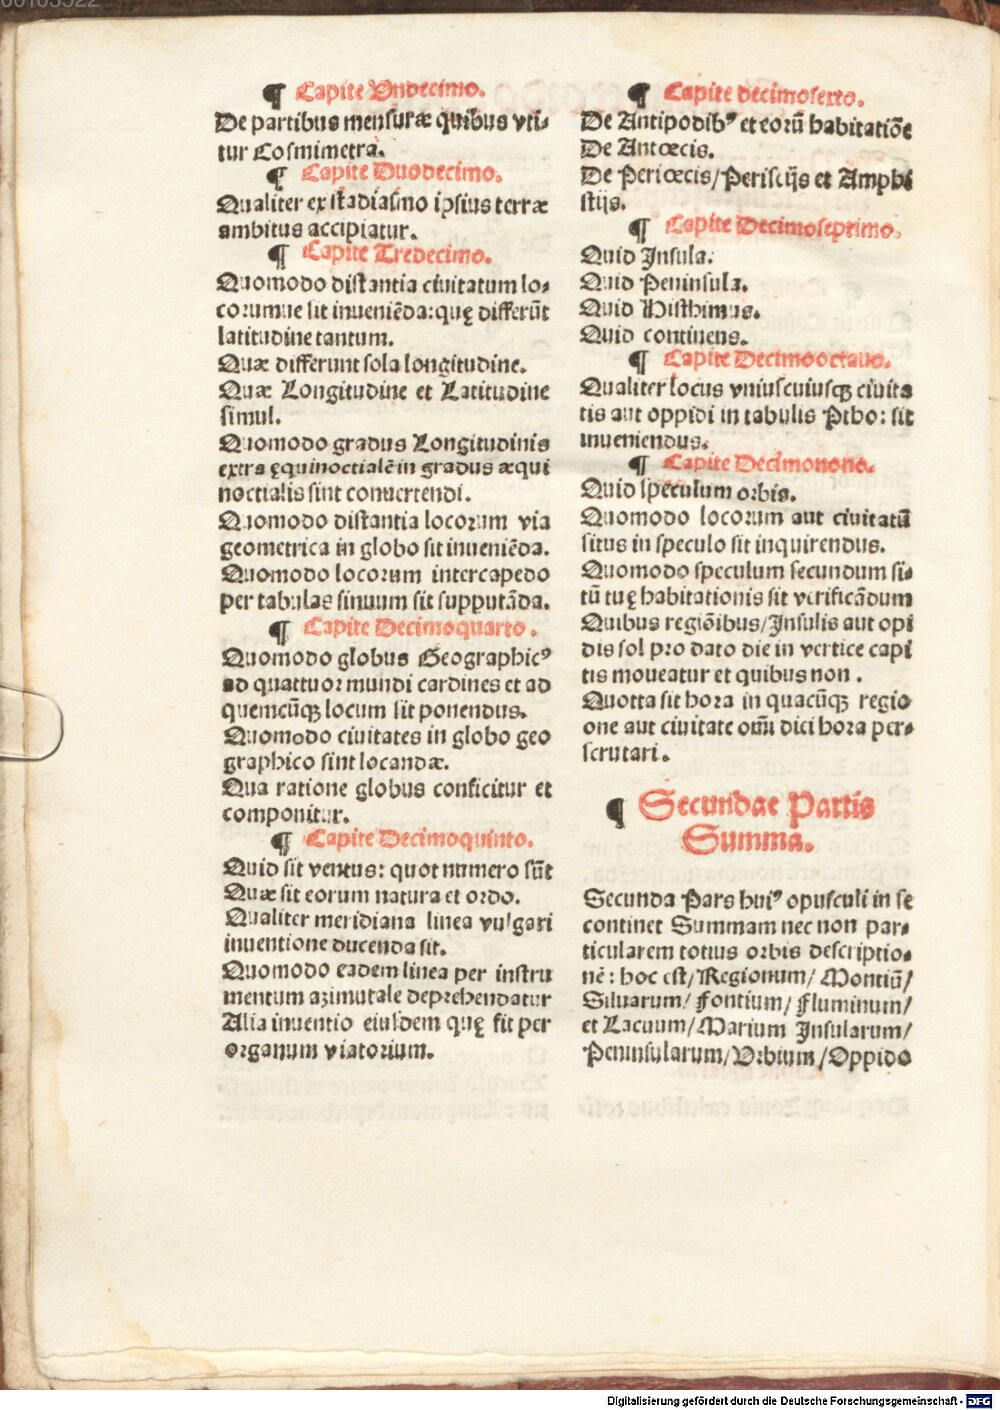 ¶ Capite Vndecimo.
De partibus mensuræ quibus vti⸗
tur Cosmimetra.
¶ Capite Duodecimo.
Qualiter ex stadiasmo ipsius terræ
ambitus accipiatur.
¶ Capite Tredecimo.
Quomodo distantia ciuitatum lo⸗
corumue sit inueniēda: quę differūt
latitudine tantum.
Quæ differunt sola longitudine.
Quæ Longitudine et Latitudine
simul.
Quomodo gradus Longitudinis
extra ęquinoctialē in gradus æqui
noctialis sint conuertendi.
Quomodo distantia locorum via
geometrica in globo sit inueniēda.
Quomodo locorum intercapedo
per tabulas sinuum sit supputāda.
¶ Capite Decimoquarto.
Quomodo globus Geographicꝰ
ad quattuor mundi cardines et ad
quemcūqꝫ locum sit ponendus.
Quomodo ciuitates in globo geo
graphico sint locandæ.
Qua ratione globus conficitur et
componitur.
¶ Capite Decimoquinto.
Quid sit ventus: quot numero sūt
Quæ sit eorum natura et ordo.
Qualiter meridiana linea vulgari
inuentione ducenda sit.
Quomodo eadem linea per instru
mentum azimutale deprehendatur
Alia inuentio eiusdem quę fit per
organum viatorium.
¶ Capite decimosexto.
De Antipodibꝰ et eorū habitatiōe
De Antœcis.
De Periœcis/ Periscijs et Amphi
scijs.
¶ Capite Decimoseptimo.
Quid Insula.
Quid Peninsula.
Quid Histhimus.
Quid continens.
¶ Capite Decimooctauo.
Qualiter locus vniuscuiusqꝫ ciuita
tis aut oppidi in tabulis Ptho: sit
inueniendus.
¶ Capite Decimonono.
Quid speculum orbis.
Quomodo locorum aut ciuitatū
situs in speculo sit inquirendus.
Quomodo speculum secundum si⸗
tū tuę habitationis sit verificādum
Quibus regiōibus/ Insulis aut opi
dis sol pro dato die in vertice capi
tis moueatur et quibus non.
Quotta sit hora in quacūqꝫ regio
one aut ciuitate om̄i diei hora per⸗
scrutari.
¶ Secundae Partis
Summa.
Secunda Pars huiꝰ opusculi in se
continet Summam nec non par⸗
ticularem totius orbis descriptio⸗
nē: hoc est/ Regionum/ Montiū/
Siluarum/ Fontium/ Fluminum/
et Lacuum/ Marium Insularum/
Peninsularum/ Vrbium/ Oppido
Digitalisierung gefördert durch die Deutsche Forschungsgemeinschaft - DFG